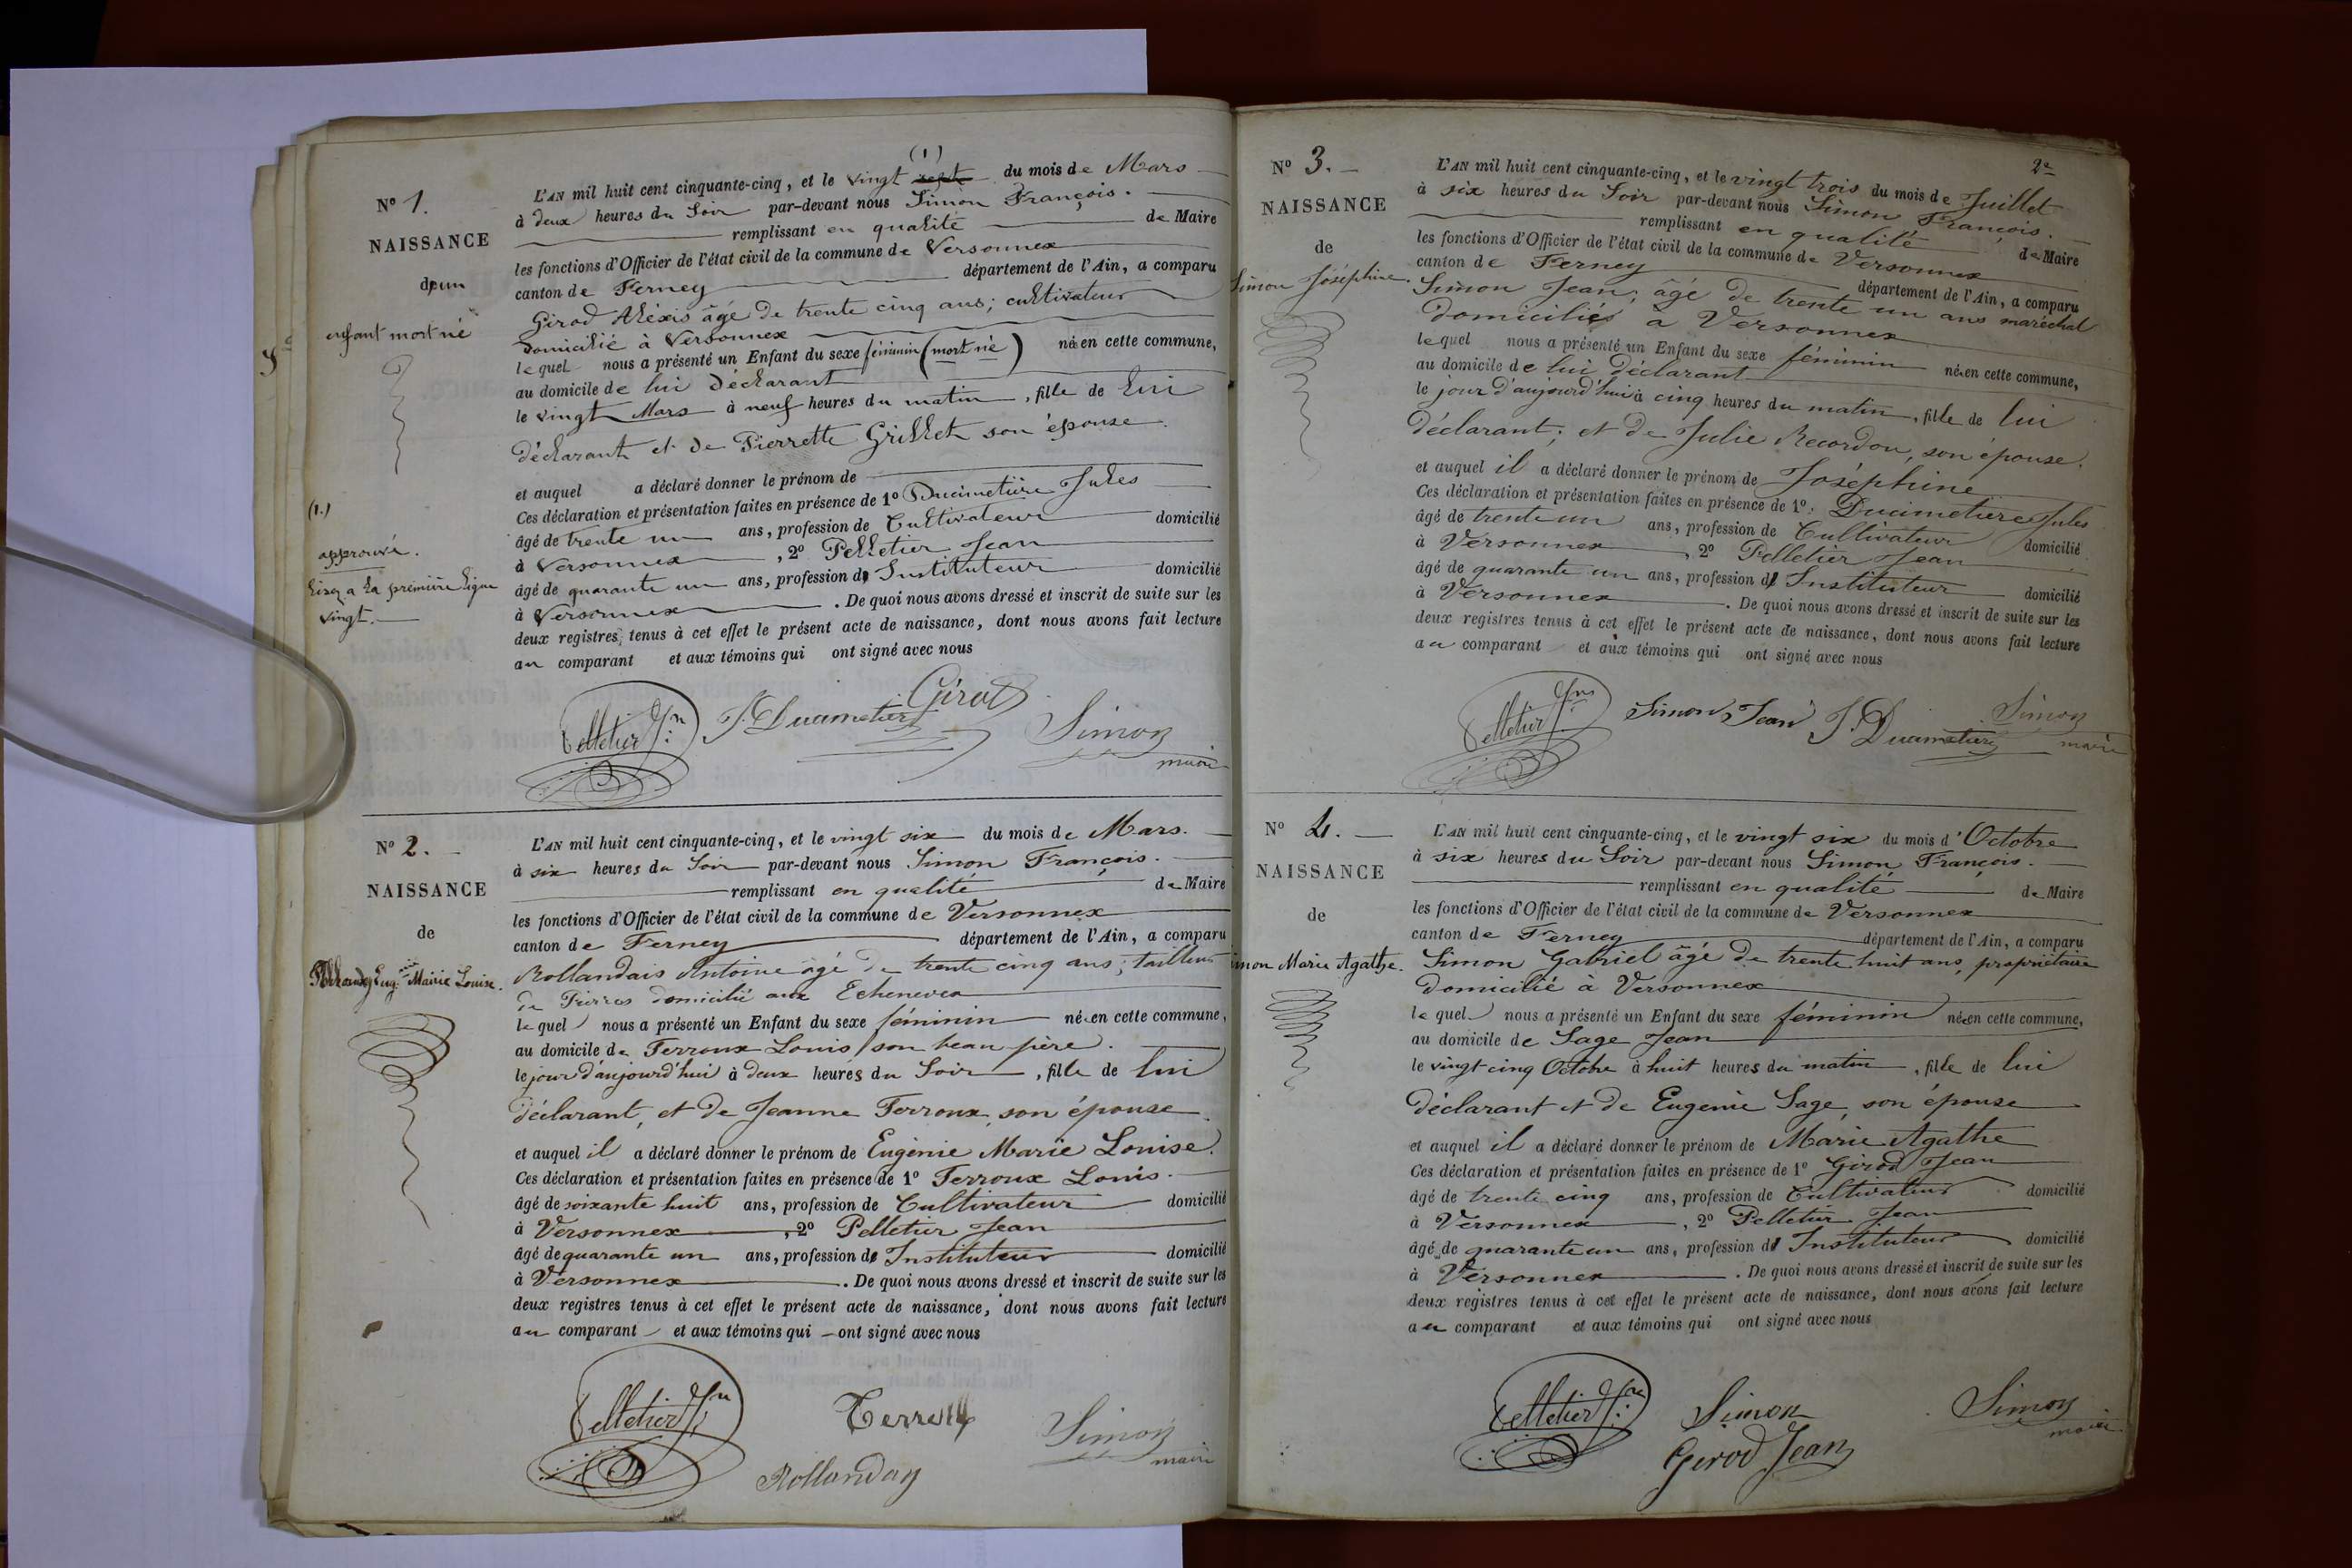 (1)
N° 1.
NAISSANCE
d'un
enfant mort né
L'AN mil huit cent cinquante-cinq, et le vingt sept du mois de Mars
à deux heures du Soir par-devant nous Simon François.
remplissant en qualité de Maire
les fonctions d'Officier de l'état civil de la commune de Versonnex
canton de Ferney département de l'Ain, a comparu
Girod Aléxis âgé de trente cinq ans; cultivateur
domicilié à Versonnex
lequel nous a présenté un Enfant du sexe féminin (mort né) née en cette commune,
au domicile de lui déclarant
le vingt Mars à neuf heures du matin, fille de lui
déclarant et de Pierrette Grillet son épouse.
et auquel a déclaré donner le prénom de
Ces déclaration et présentation faites en présence de 1° Ducimetière Jules
âgé de trente un ans, profession de Cultivateur domicilié
à Versonnex, 2° Pelletier Jean
âgé de quarante un ans, profession d' Instituteur domicilié
à Versonnex. De quoi nous avons dressé et inscrit de suite sur les
deux registres, tenus à cet effet le présent acte de naissance, dont nous avons fait lecture
au comparant et aux témoins qui ont signé avec nous
(1.)
approuvé.
Lisez a la première ligne
vingt.
Pelletier Jn J. Ducimetière Girod Simon
maire
N° 2.
NAISSANCE
de
Eug. Marie Louise.
L'AN mil huit cent cinquante-cinq, et le vingt six du mois de Mars.
à six heures du Soir par-devant nous Simon François.
remplissant en qualité de Maire
les fonctions d'Officier de l'état civil de la commune de Versonnex
canton de Ferney département de l'Ain, a comparu
Rollandais Antoine âgé de trente cinq ans; tailleur
de Pierres domicilié aux Echenevex
lequel nous a présenté un Enfant du sexe féminin née en cette commune,
au domicile de Ferroux Louis son beau père.
le jour d'aujourd'hui à deux heures du Soir, fille de lui
déclarant, et de Jeanne Ferroux, son épouse
et auquel il a déclaré donner le prénom de Eugènie Marie Louise.
Ces déclaration et présentation faites en présence de 1° Ferroux Louis.
âgé de soixante huit ans, profession de Cultivateur domicilié
à Versonnex, 2° Pelletier Jean
âgé de quarante un ans, profession d' Instituteur domicilié
à Versonnex. De quoi nous avons dressé et inscrit de suite sur les
deux registres tenus à cet effet le présent acte de naissance, dont nous avons fait lecture
au comparant et aux témoins qui ont signé avec nous
Pelletier Jn Simon
maire
Rollanday
2e
N° 3.
NAISSANCE
de
Simon Joséphine.
L'AN mil huit cent cinquante-cinq, et le vingt trois du mois de Juillet
à six heures du Soir par-devant nous Simon François.
remplissant en qualité de Maire
les fonctions d'Officier de l'état civil de la commune de Versonnex
canton de Ferney département de l'Ain, a comparu
Simon Jean; âgé de trente un ans maréchal
domicilié à Versonnex
lequel nous a présenté un Enfant du sexe féminin née en cette commune,
au domicile de lui déclarant
le jour d'aujourd'hui à cinq heures du matin, fille de lui
déclarant; et de Julie Recordon, son épouse.
et auquel il a déclaré donner le prénom de Joséphine
Ces déclaration et présentation faites en présence de 1°. Ducimetière Jules
âgé de trente un ans, profession de Cultivateur domicilié
à Versonnex, 2° Pelletier Jean
âgé de quarante un ans, profession d' Instituteur domicilié
à Versonnex. De quoi nous avons dressé et inscrit de suite sur les
deux registres tenus à cet effet le présent acte de naissance, dont nous avons fait lecture
au comparant et aux témoins qui ont signé avec nous
Pelletier Jn Simon Jean J. Ducimetière Simon
maire
N° 4.
NAISSANCE
de
imon Marie Agathe.
L'AN mil huit cent cinquante-cinq, et le vingt six du mois d'Octobre
à six heures du Soir par-devant nous Simon François.
remplissant en qualité de Maire
les fonctions d'Officier de l'état civil de la commune de Versonnex
canton de Ferney département de l'Ain, a comparu
Simon Gabriel âgé de trente huit ans, propriétaire
domicilié à Versonnex
lequel nous a présenté un Enfant du sexe féminin née en cette commune,
au domicile de Sage Jean
le vingt cinq Octobre à huit heures du matin, fille de lui
déclarant et de Eugenie Sage, son épouse
et auquel il a déclaré donner le prénom de Marie Agathe
Ces déclaration et présentation faites en présence de 1° Girod Jean
âgé de trente cinq ans, profession de Cultivateur domicilié
à Versonnex, 2° Pelletier Jean
âgé de quarante un ans, profession d' Instituteur domicilié
à Versonnex. De quoi nous avons dressé et inscrit de suite sur les
deux registres tenus à cet effet le présent acte de naissance, dont nous avons fait lecture
au comparant et aux témoins qui ont signé avec nous
Pelletier Jn Simon Simon
maire
Girod Jean